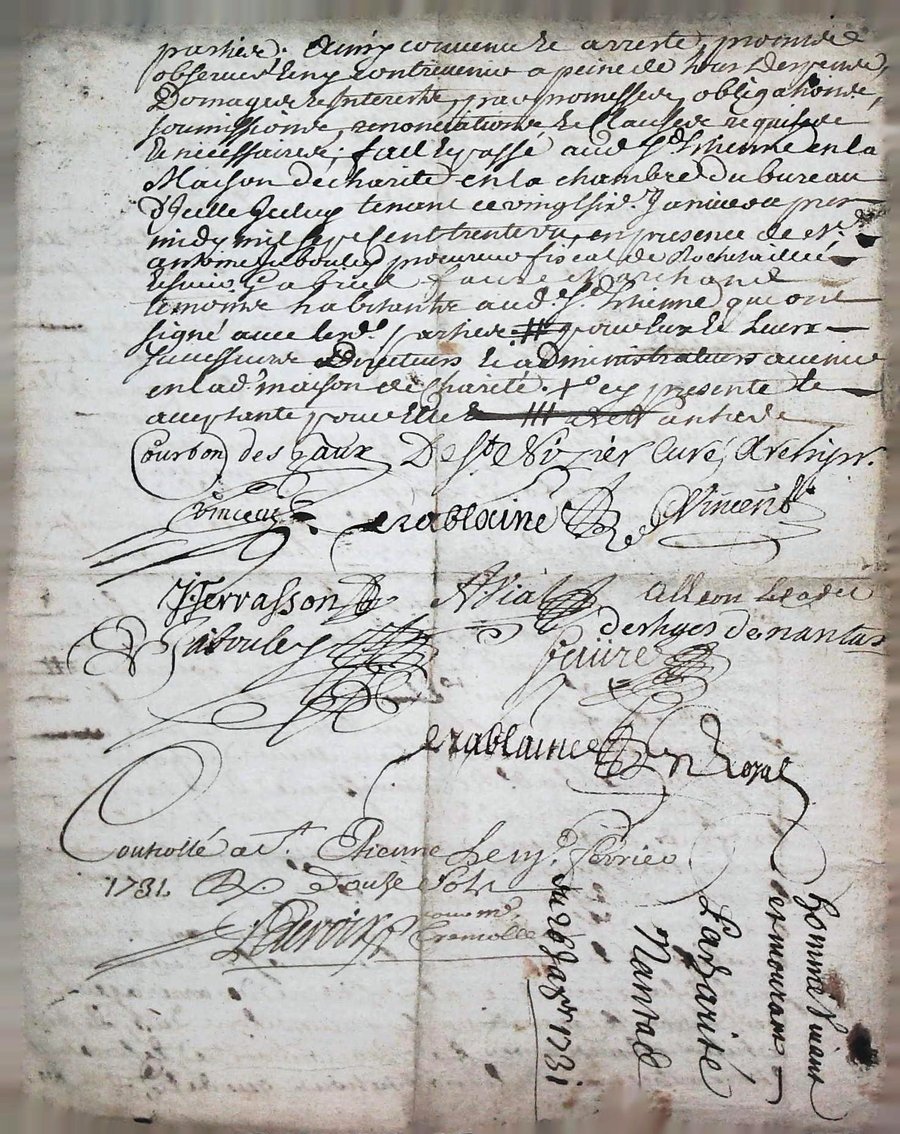 parties. Ainsy convenu et arresté, promis
observer et ny contrevenir a peine de tous despens,
Domages et Interests, par promesses, obligations,
soumissions, renonciations et Clauses requises
et nécessaires; fait et passé aud. St. Etienne en la
Maison de charité en la chambre du bureau
d'Icelle Iceluy tenant ce vingt six Janvier
midy mil sept cent trente un, en presence de Mr
antoine Jabouley procureur fiscal de Rochetaillée
et sieur Gabriel faure Marchand
témoins habitants aud. St. Etienne qui ont
signé avec lesd. parties # pour eux et leurs
successeurs Directeurs et administrateurs avenir
en lad. maison de Charité. + cy presente et
acceptante pour Elle
Courbon des gaux De St. Nizier Curé, Archipr.
Vincent erablaine Vincent
J Terrasson A Vial alleon le cadet
Jabouley deshyes de nantas
faure
erablaine n Royal
Controllé a St. Etienne Le Fevrier
1731. R Douse Sols
Tremolle
homme vivant
et mourant
La charité
Nantas
du 26 Janr 1731